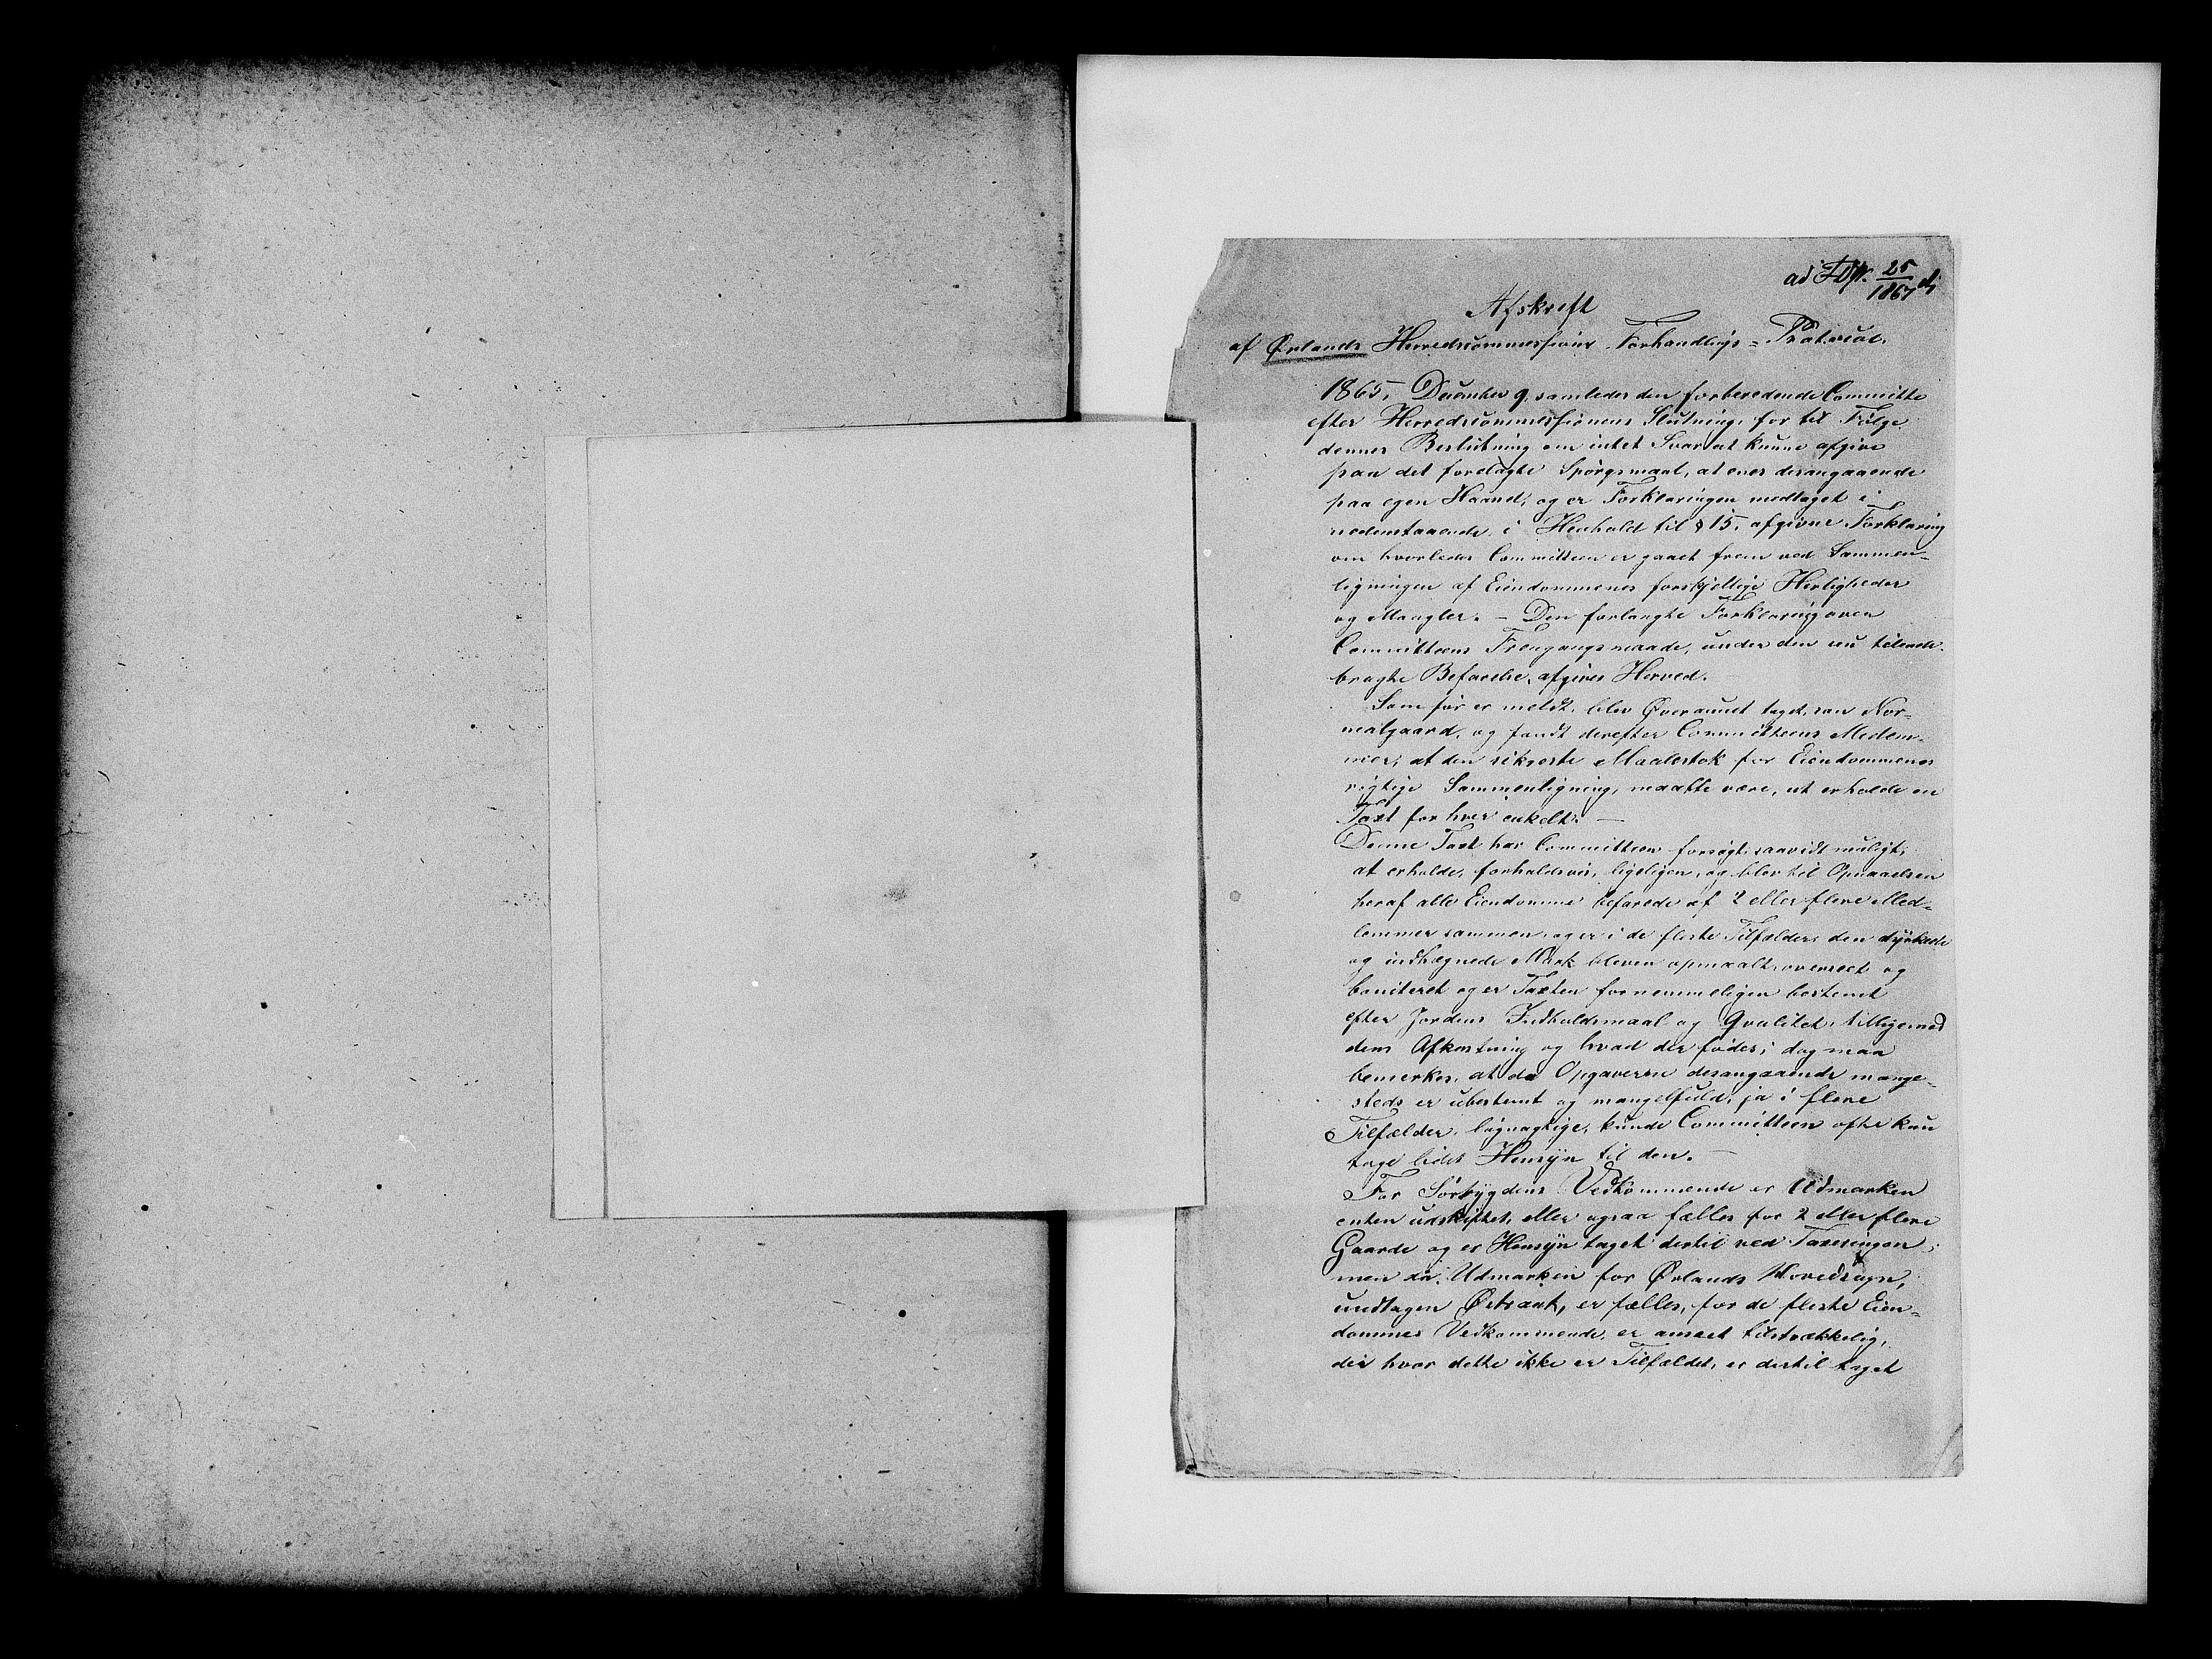 ad 25/1867
Afskrift
af Ørlands Herredscommissions Forhandlings=Protocol.
1865, December 9, samledes den forberedende Committe
efter Herredscommissionens Slutning, for til Følge
dennes Beslutning om intet Svar at kunne afgive
paa det forelagte Spørgsmaal, at enes desangaaende
paa egen Haand, og er Forklaringen medtaget i
nedenstaaende i Henhold til § 15, afgivne Forklaring
om hvorledes Committeen er gaaet frem ved Sammen-
ligningen af Eiendommenes forskjellige Herligheder
og Mangler. – Den forlangte Forklaring over
Committeens Fremgangsmaade, under den nu tilende-
bragte Befarelse, afgives Herved.
Som før er meldt, blev Øveraunet taget som Nor-
malgaard, og fandt derefter Committeens Medlem-
mer, at den sikreste Maalestok for Eiendommenes
rigtige Sammenligning, maatte være, at erholde en
Taxt for hver enkelt. –
Denne Taxt har Committeen forsøgt saavidt muligt,
at erholde, forholdsvis, ligeligen, og blev til Opnaaelsen
heraf alle Eiendomme befarede af 2 eller flere Med-
lemmer sammen, og er i de fleste Tilfælder den dyrkede
og indhegnede Mark bleven opmaalt, overseet og
boniteret og er Taxten fornemmeligen bestemt
efter Jordens Indholdsmaal og Qvalitet, tilligemed
dens Afkastning og hvad der fødes; dog maa
bemerkes, at da Opgaverne desangaaende mange-
steds er ubestemt og mangelfuld, ja i flere
Tilfælder, løgnagtige, kunde Committeen ofte kun
tage lidet Hensyn til den. –
For Sørbygdens Vedkommende er Udmarken
enten udskiftet, eller ogsaa fælles for 2 eller flere
Gaarde og er Hensyn taget dertil ved Taxeringen;
men da Udmarken for Ørlands Hovedsogn,
undtagen Østraat, er fælles, for de fleste Eien-
dommes Vedkommende, er anseet tilstrækkelig,
der hvor dette ikke er Tilfældet, er dertil taget